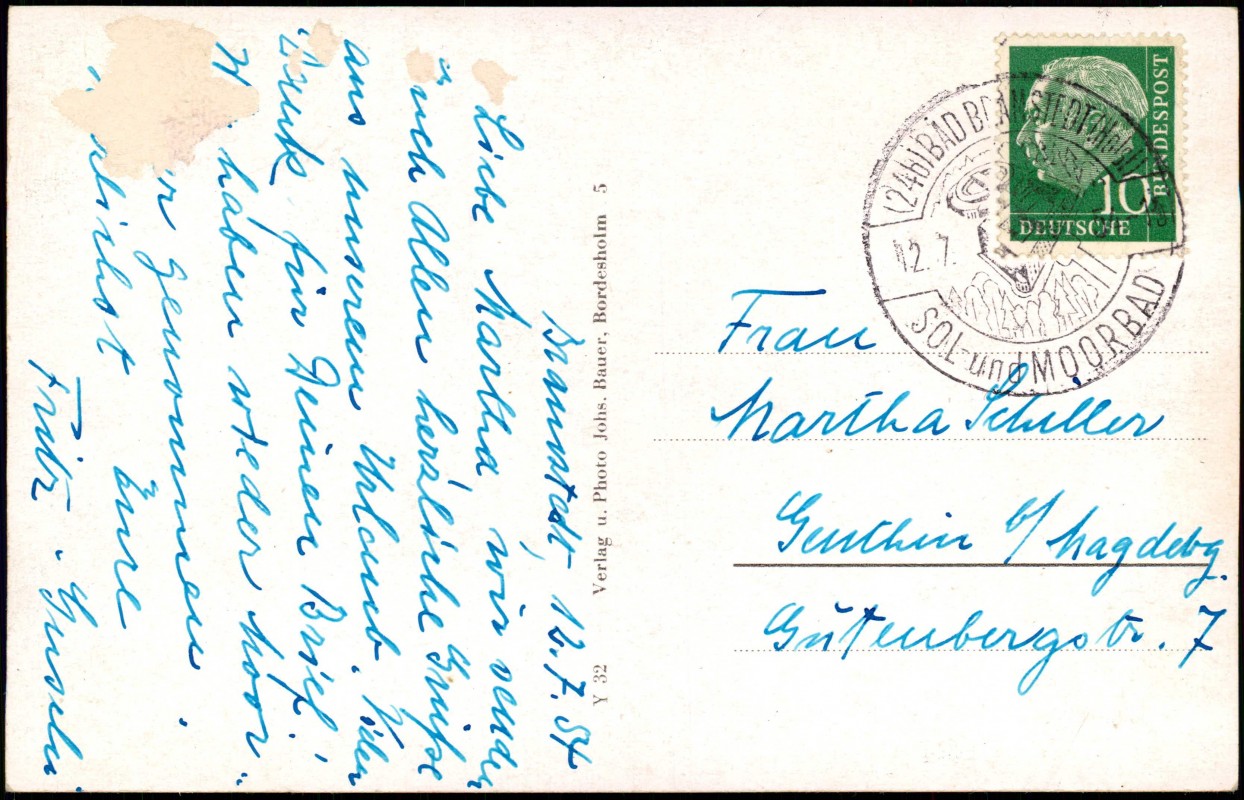 Bramstedt, 12.7.54
Liebe Martha, wir senden
Euch Allen herzliche Grüße
aus unserem Urlaub. Vielen
Dank für Deinen Brief!
haben wieder Moor-
gewonnen.
Eure
Fritz.
Y 32 Verlag u. Photo Johs. Bauer, Bordesholm 5
DEUTSCHE
BUNDESPOST
10
(24b) BAD BRAMSTEDT (Holst)
12.7.
SOL- und MOORBAD
Frau
Martha Schiller
Genthin b/Magdebg.
Gutenbergstr. 7